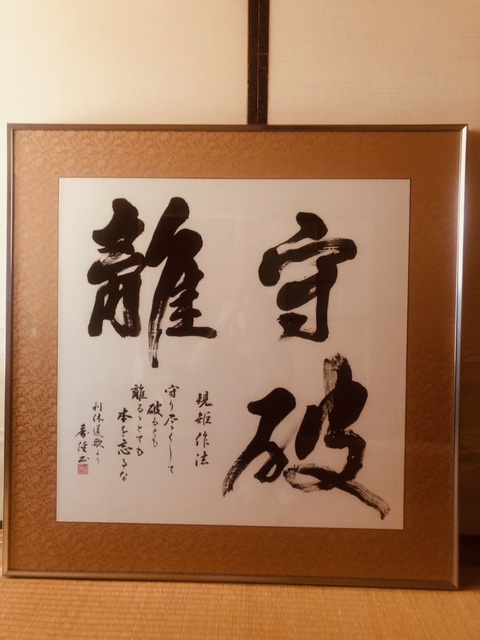 守
破
離
規矩作法
守り尽くして
破るとも
離るゝとても
本を忘るな
利休道歌より